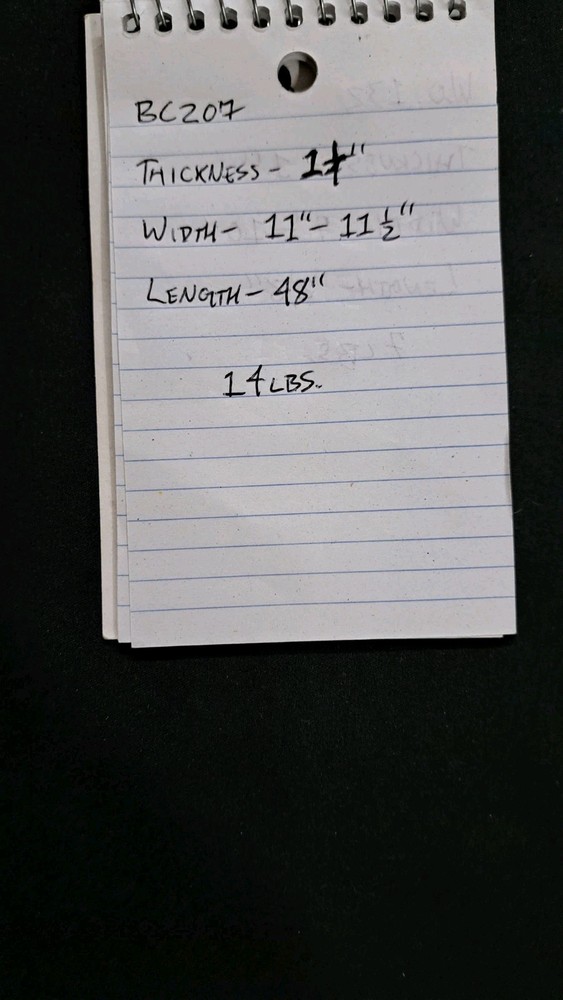 BC207
THICKNESS-
WIDTH- 11"- 11 1/2"
LENGTH- 48"
14 LBS.